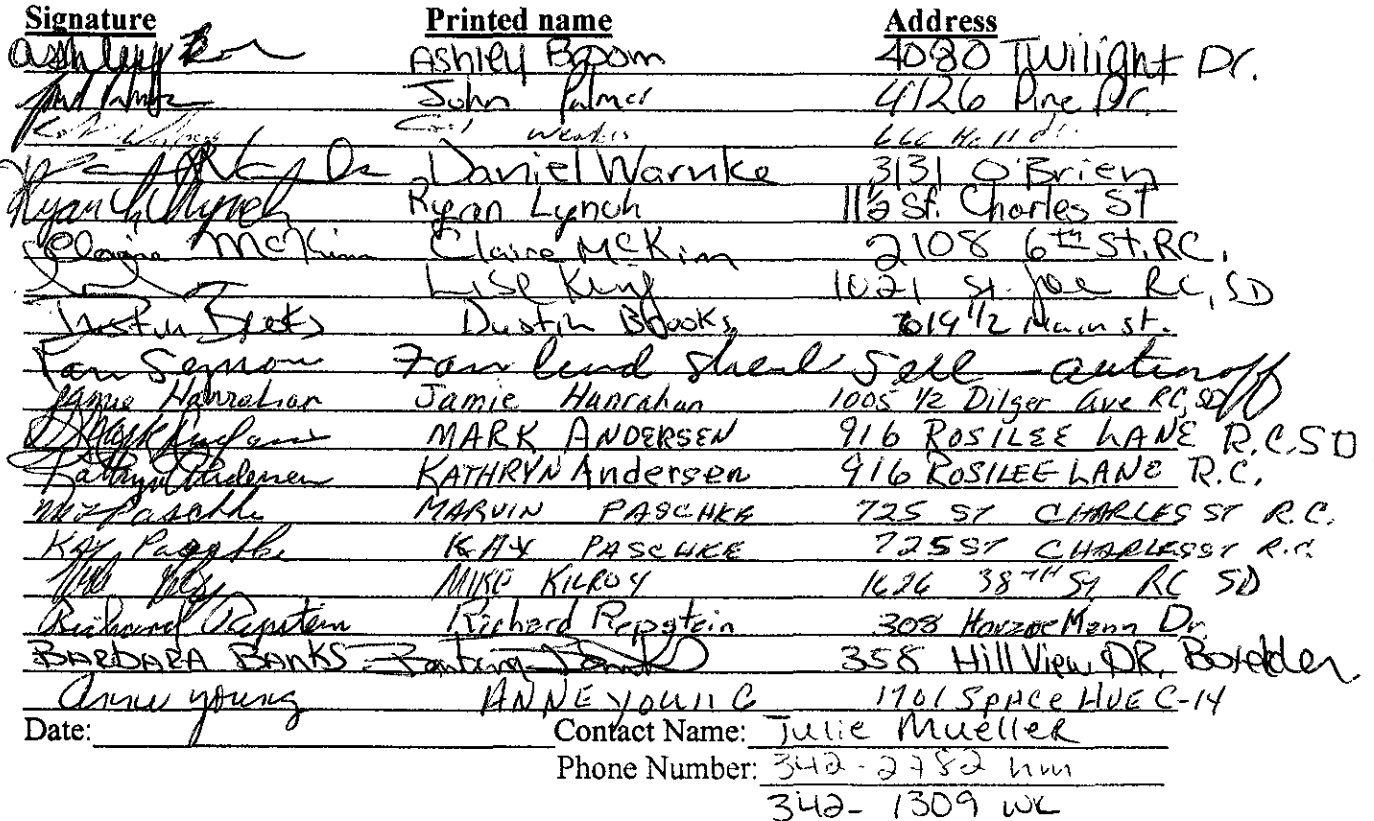 Signature Printed name Address
Ashley Ashley Boom 4080 Twilight Dr.
John Palmer 4126 Pine Dr.
Daniel Warnke 3131 O'Brien
Ryan Lynch Ryan Lynch 11½ St. Charles St
Claire McKim Claire McKim 2108 6th St, RC.
King 1021 St. Joe RC, SD
Dustin Brooks Dustin Brooks, 1/2 Main st.
Jamie Hanrahan Jamie Hanrahan 1005 1/2 Dilger Ave RC, SD
MARK ANDERSEN 916 ROSILEE LANE R.C. SD
Kathryn Andersen KATHRYN Andersen 916 ROSILEE LANE R.C.
Paschke MARVIN PASCHKE 725 ST CHARLES ST R.C.
KAY Paschke KAY PASCHKE 725 ST CHARLES ST R.C.
MIKE KILROY 1626 38TH St RC SD
Richard Richard 308 Mann Dr.
BARBARA BANKS 358 Hill View DR,
Anne Young ANNE YOUNG 1701 SPACE AVE C-14
Date: Contact Name: Julie Mueller
Phone Number: 342-2782 hm
342-1309 wk